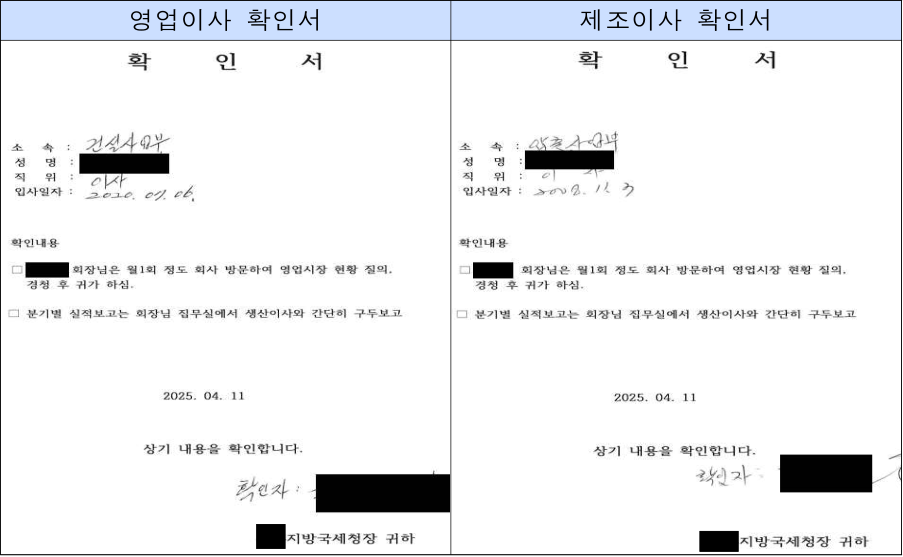 영업이사 확인서
확 인 서
소 속 : 건설사업부
성 명 :
직 위 : 이사
입사일자 : 2020. 07. 06.
확인내용
□ 회장님은 월1회 정도 회사 방문하여 영업시장 현황 질의,
경청 후 귀가 하심.
□ 분기별 실적보고는 회장님 집무실에서 생산이사와 간단히 구두보고
2025. 04. 11
상기 내용을 확인합니다.
확인자 :
지방국세청장 귀하
제조이사 확인서
확 인 서
소 속 :
성 명 :
직 위 : 이 사
입사일자 : 2008. 11. 3
확인내용
□ 회장님은 월1회 정도 회사 방문하여 영업시장 현황 질의,
경청 후 귀가 하심.
□ 분기별 실적보고는 회장님 집무실에서 생산이사와 간단히 구두보고
2025. 04. 11
상기 내용을 확인합니다.
확인자 :
지방국세청장 귀하